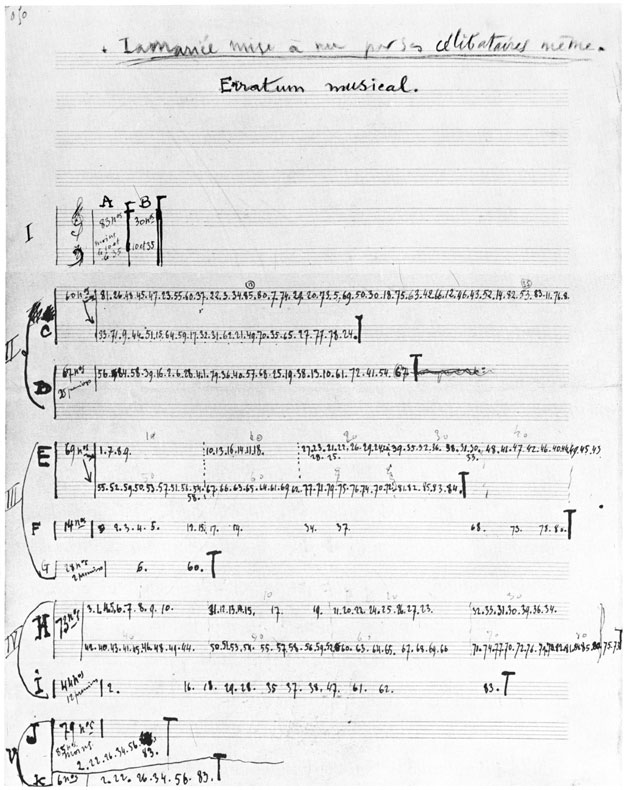 La mariée mise à nu par ses célibataires même.
Erratum musical.
A B
I 83 nos 30 nos
moins
6 10 et 35
II C 60 nos 81.26.43.45.47.23.55.60.37.22.3.34.85.80.7.74.29.20.73.5.69.50.30.18.75.63.42.66.12.46.43.52.14.82.53.83.11.76.8.
33.71.9.44.51.15.64.59.17.32.31.62.21.49.70.35.65.27.77.78.24.
D 67 nos 56.84.58.39.16.2.6.28.41.79.36.40.57.68.25.19.38.13.10.61.72.41.54. 67
10 20 30 40
III E 69 nos 1.7.8.9. 10.13.16.14.11.18. 39.35.32.36. 48.41.47.42.46.40.44.49.45.43
55.52.59.50.53.57.51.56.54. 67.66.63.65.64.61.69.62. 77.71.79.75.76.74.70.72. 81.82.85.83.84.
58.
F 14 nos 2.3.4.5. 12.15. 17. 19. 34. 37. 68. 73. 78.80.
G 28 nos 6. 60.
10 20 30
IV H 73 nos 3.1.4.5.6.7.8.9.10. 11.12.13.14.15. 17 19. 21.20.22.24.25.26.27.23. 32.33.31.30.39.36.34.
42.40.43.41.45.46.48.49.44. 50.51.53.54. 55.57.58.56.59.52. 60. 63.64.65. 67.68.69.66
i 44 nos 2. 16. 18. 29.28. 35 37. 38. 47. 61. 62. 83.
V J 79 nos
2.22.26.34.56. 83.
K 6 nos 2.22.26.34.56.83.